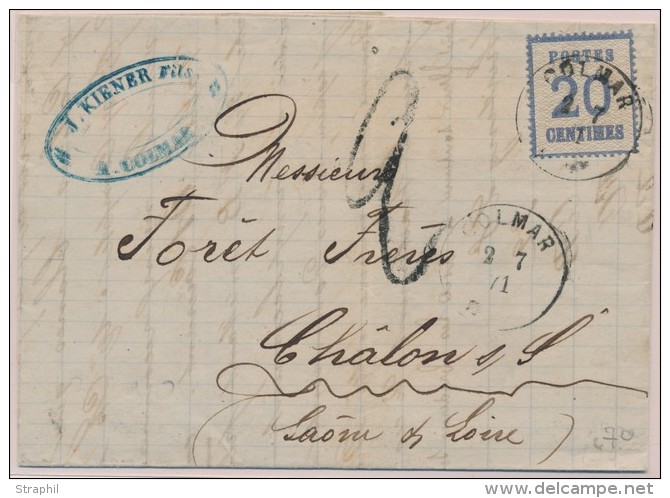 J. KIENER Fils
A. COLMAR
POSTES
20
CENTIMES
COLMAR
2 7
2
Messieurs
Forêt Frères
COLMAR
2 7
71
Châlon s/ S
(Saône & Loire)
Straphil
www.delcampe.net